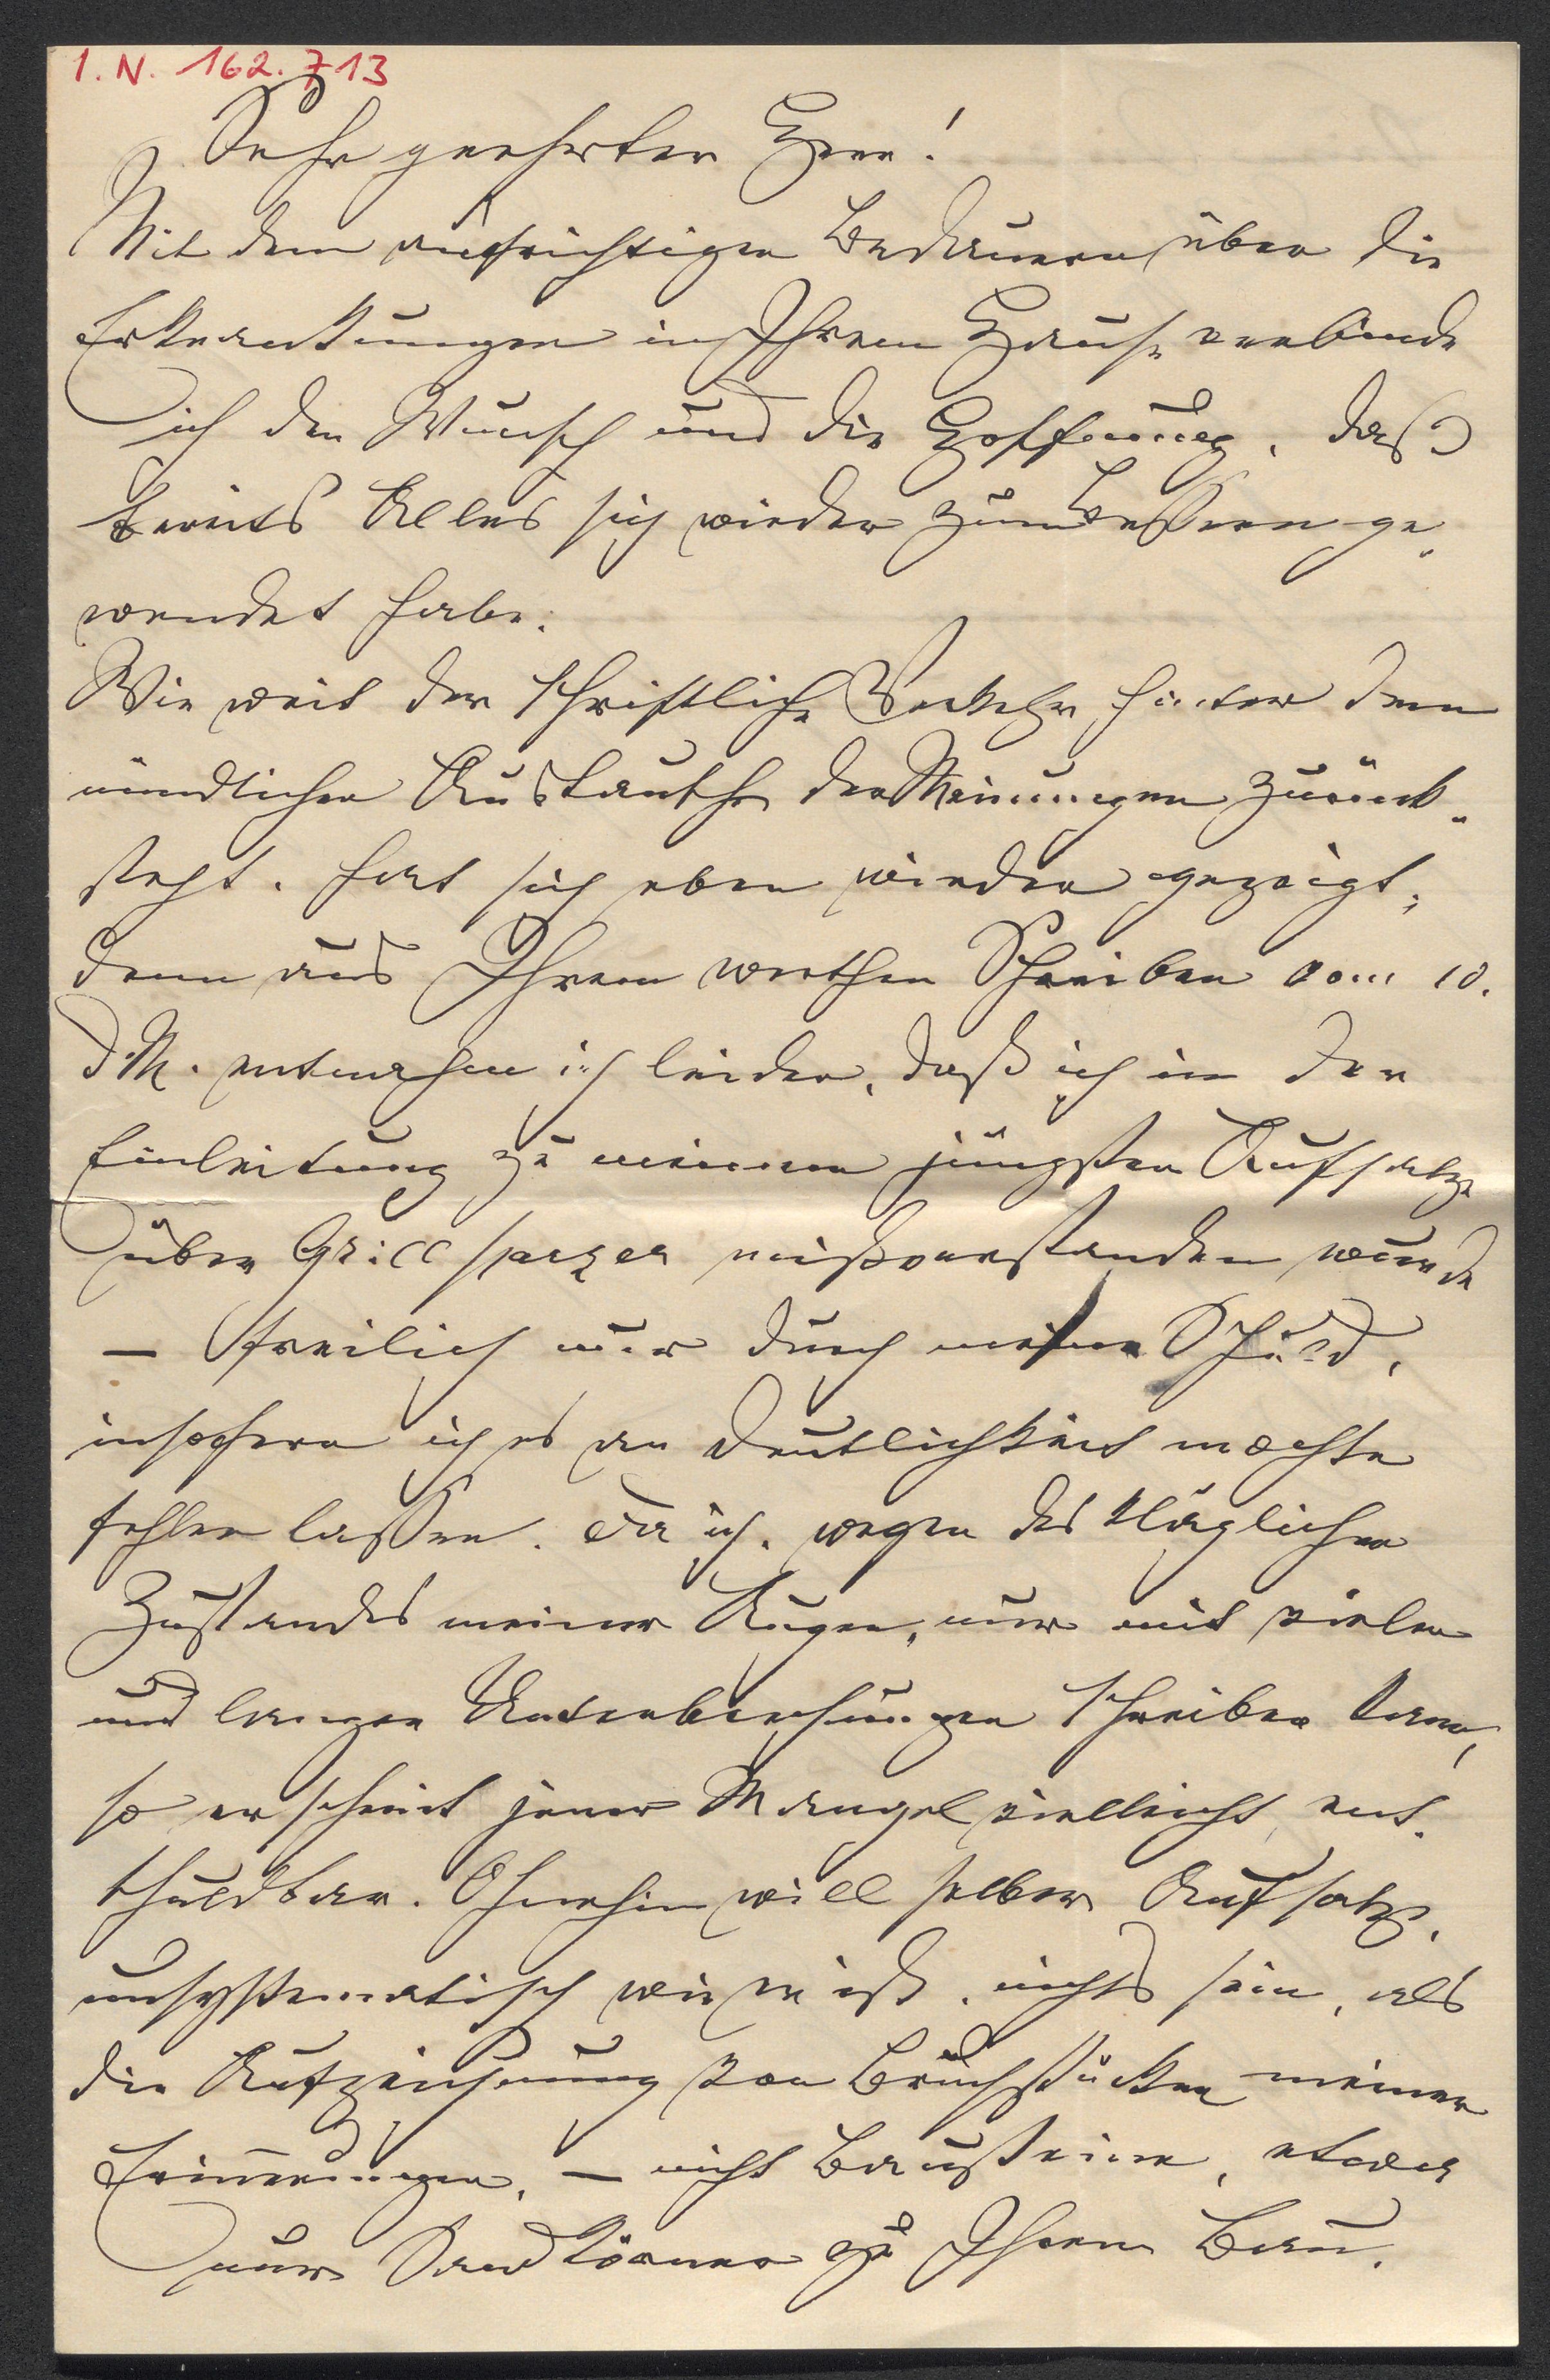 I. N. 162.713
Sehr geehrter Herr!
Mit dem aufrichtigen Bedauern über die
Erkrankungen in Ihrem Hause verbinde
ich den Wunsch und die Hoffnung, daß
bereits Alles sich wieder zum Bessern ge-
wendet habe.
Wie weit der schriftliche Verkehr hinter dem
mündlichen Austausche der Meinungen zurück-
steht, hat sich eben wieder gezeigt;
denn aus Ihrem werthen Schreiben vom 10.
d. M. entnehme ich leider, daß ich in der
Einleitung zu meinem jüngsten Aufsatze
über Grillparzer mißverstanden wurde
— freilich nur durch meine Schuld,
insofern ich es an Deutlichkeit mochte
fehlen lassen. Da ich, wegen des kläglichen
Zustandes meiner Augen, nur mit vielen
und langen Unterbrechungen schreiben kann,
so erscheint jener Mangel vielleicht ent-
schuldbar. Ohnehin will selber Aufsatz,
unsystematisch wie er ist, nichts sein, als
die Aufzeichnung von Bruchstücken meiner
Erinnerungen, — nicht Bausteine, etwa
nur Sandkörner zu Ihrem Bau.